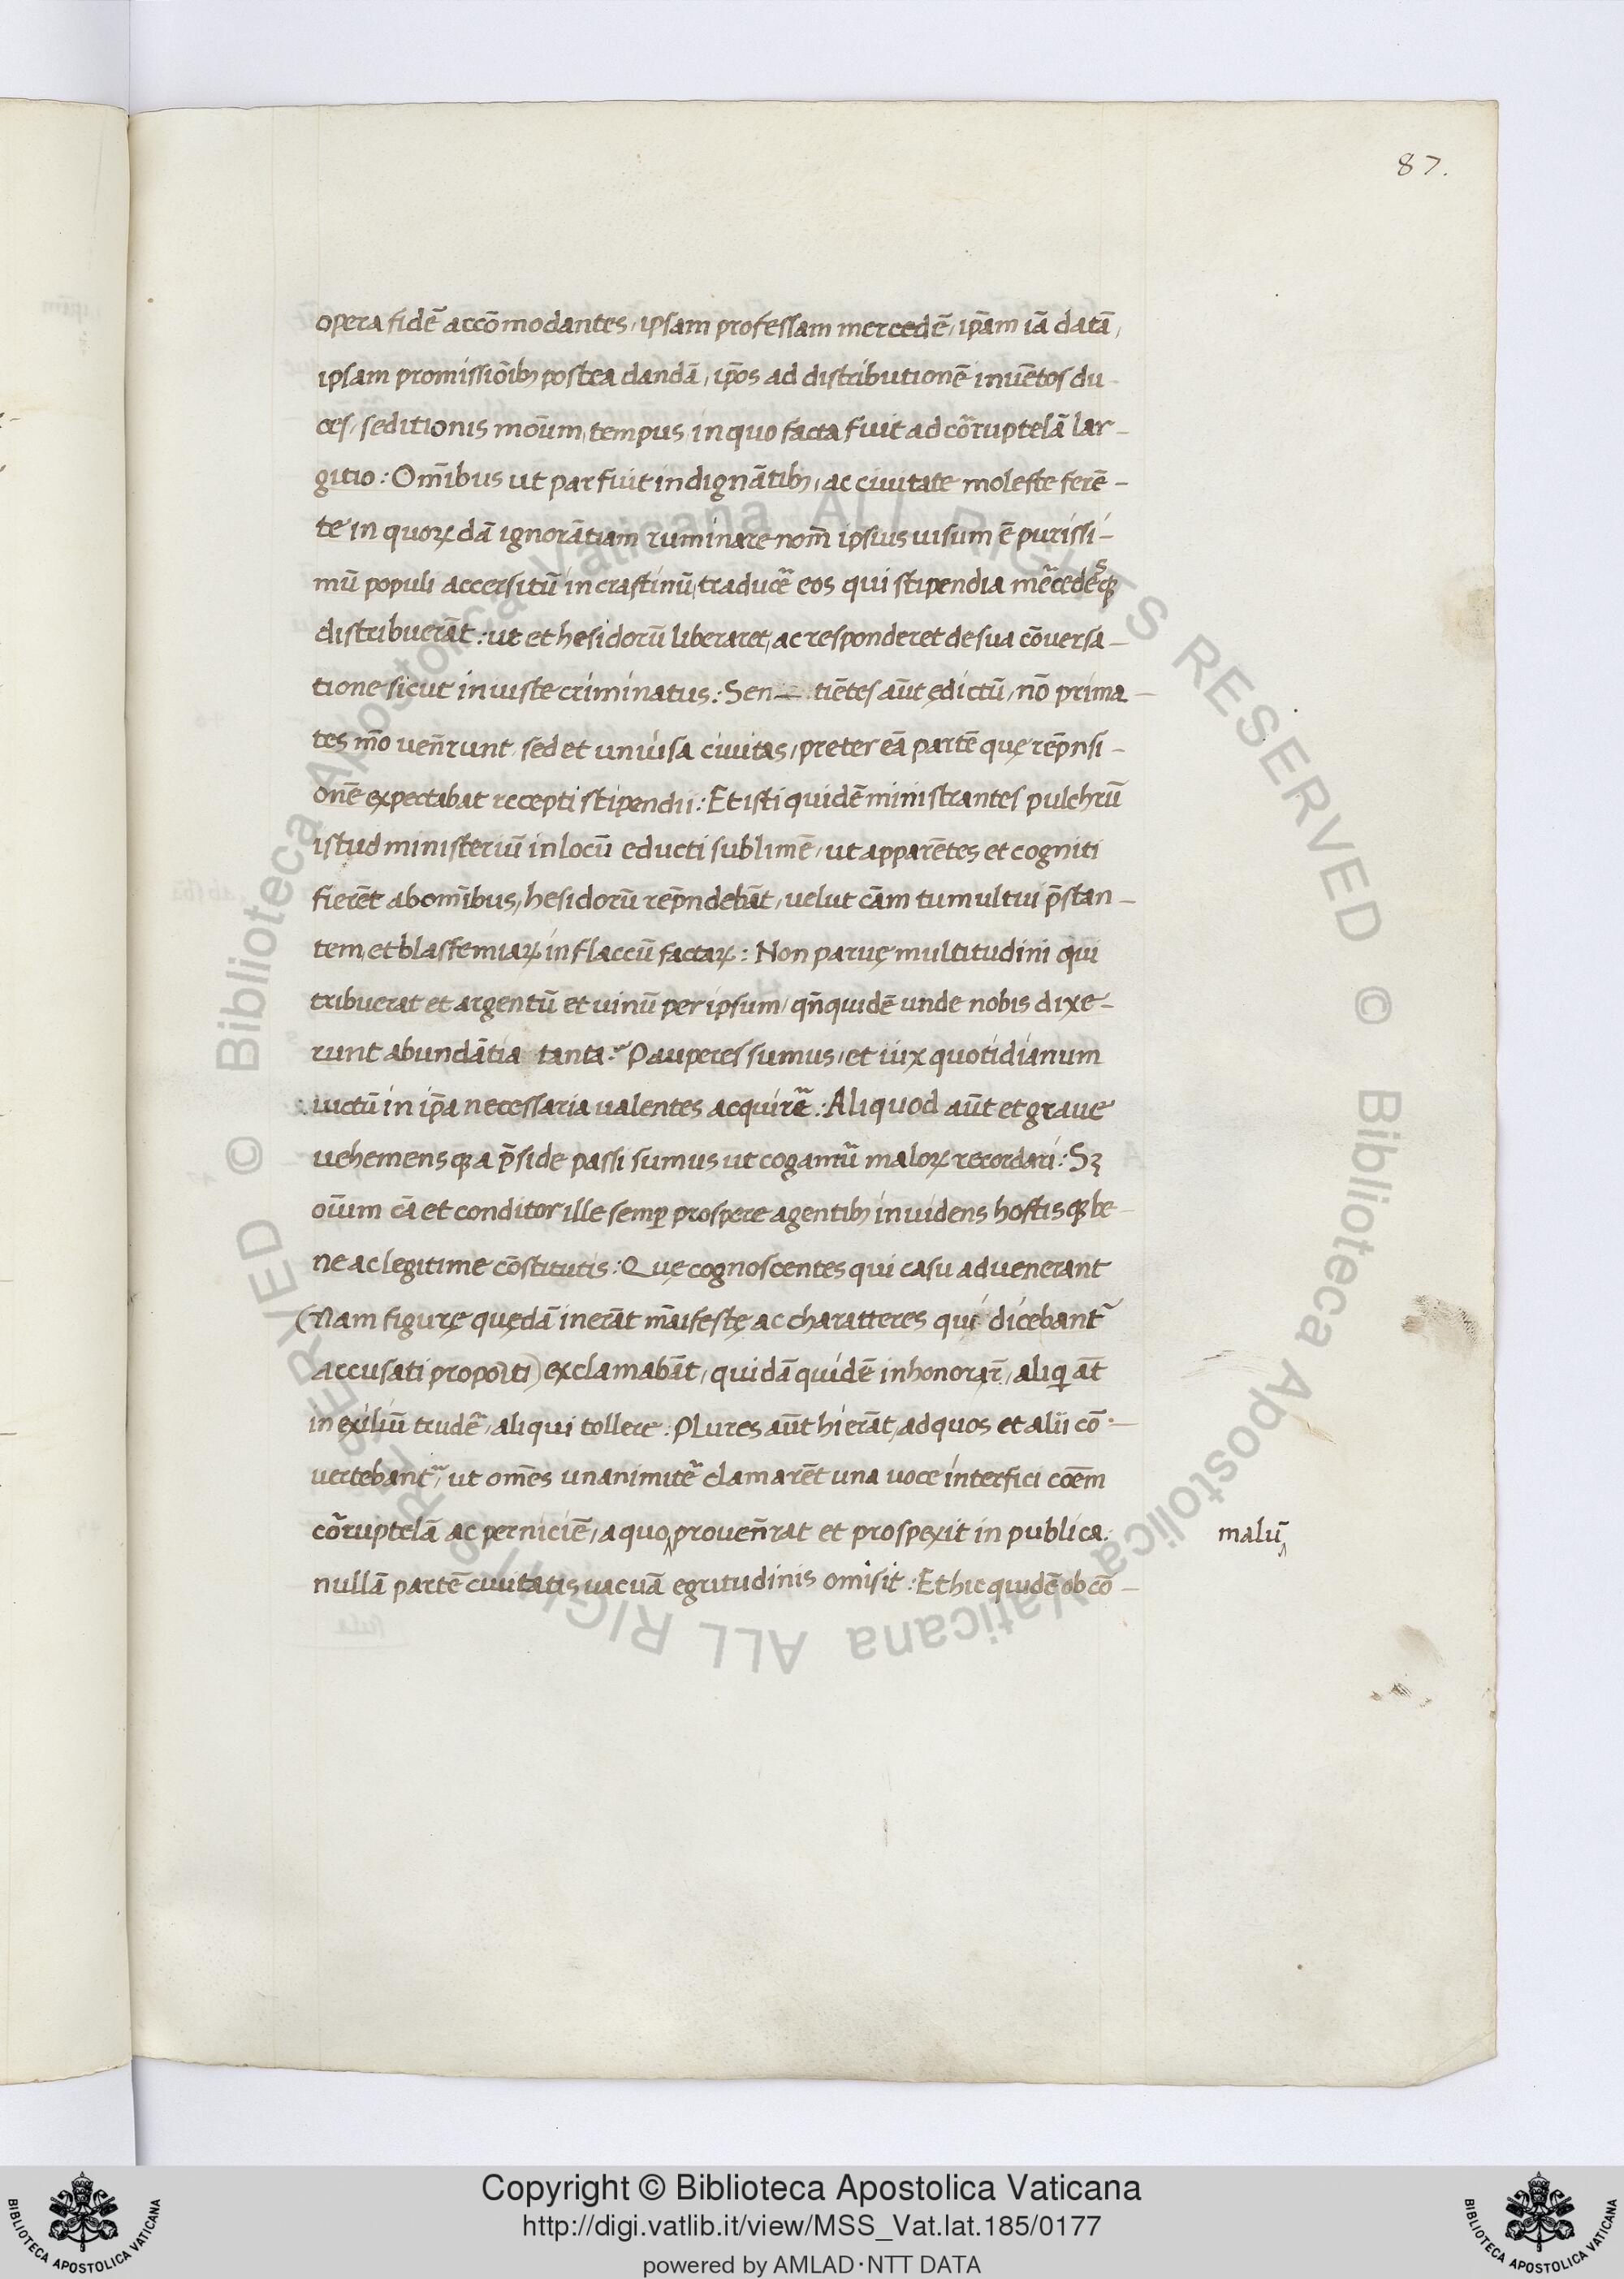 87.
opera fidē accōmodantes, ipsam professam mercedē, ip̄am iā datā,
ipsam promissiōib; postea dandā, ip̄os ad distributionē inuētos du-
ces, seditionis mōum, tempus, in quo facta fuit ad cōruptelā lar-
gitio: Om̄ibus ut par fuit indignātib; ac ciuitate moleste ferē-
te in quoꝝdā ignorātiam ruminare nom̄ ipsius uisum ē purissi-
mū populi accersitū in crastinū, traduce᷑ eos qui stipendia me᷑cedesqꝫ
distribuerāt: ut et hesidorū liberaret, ac responderet de sua cōuersa-
tione sicut iniuste criminatus: Sen- tiētes aūt ędictū, nō prima-
tes mō uen̄runt, sed et uniu᷑sa ciuitas, preter eā partē quę rep̄nsi-
onē expectabat recepti stipendii: Et isti quidē ministrantes pulchrū
istud ministeriū in locū educti sublimē, ut apparētes et cogniti
fierēt ab om̄ibus, hesidorū rep̄ndebāt, uelut cām tumultui p̄stan-
tem, et blasfemiaꝝ in flaccū factaꝝ: Non paruę multitudini qui
tribuerat et argentū et uinū per ipsum, qn̄quidē unde nobis dixe-
runt abundātia tanta? Pauperes sumus, et uix quotidianum
uictū in ip̄a necessaria ualentes acquire᷑: Aliquod aūt et graue
uehemensqꝫ a p̄side passi sumus ut cogamu᷑ maloꝝ recordari: Sꝫ
oīum cā et conditor ille semꝑ prospere agentib; inuidens hostisqꝫ be-
ne ac legitime cōstitutis: Quę cognoscentes qui casu aduenerant
(Nam figurę quędā inerāt māifestę ac charatteres qui dicebant᷑
accusati propoiti) exclamabāt, quidā quidē inhonorar̄, aliqi āt
in exiliū trude᷑, aliqui tollere: Plures aūt hi erāt, ad quos et alii cō-
uertebant᷑, ut om̄es unanimite᷑ clamarēt una uoce interfici coēm
cōruptelā ac perniciē, a quo‸prouen̄rat et prospexit in publica. malū‸
nullā partē ciuitatis uacuā egritudinis omisit: Et hic quidē ob cō-
Copyright © Biblioteca Apostolica Vaticana
http://digi.vatlib.it/view/MSS_Vat.lat.185/0177
powered by AMLAD·NTT DATA
BIBLIOTECA APOSTOLICA VATICANA
BIBLIOTECA APOSTOLICA VATICANA
© Biblioteca Apostolica Vaticana ALL RIGHTS RESERVED © Biblioteca Apostolica Vaticana ALL RIGHTS RESERVED